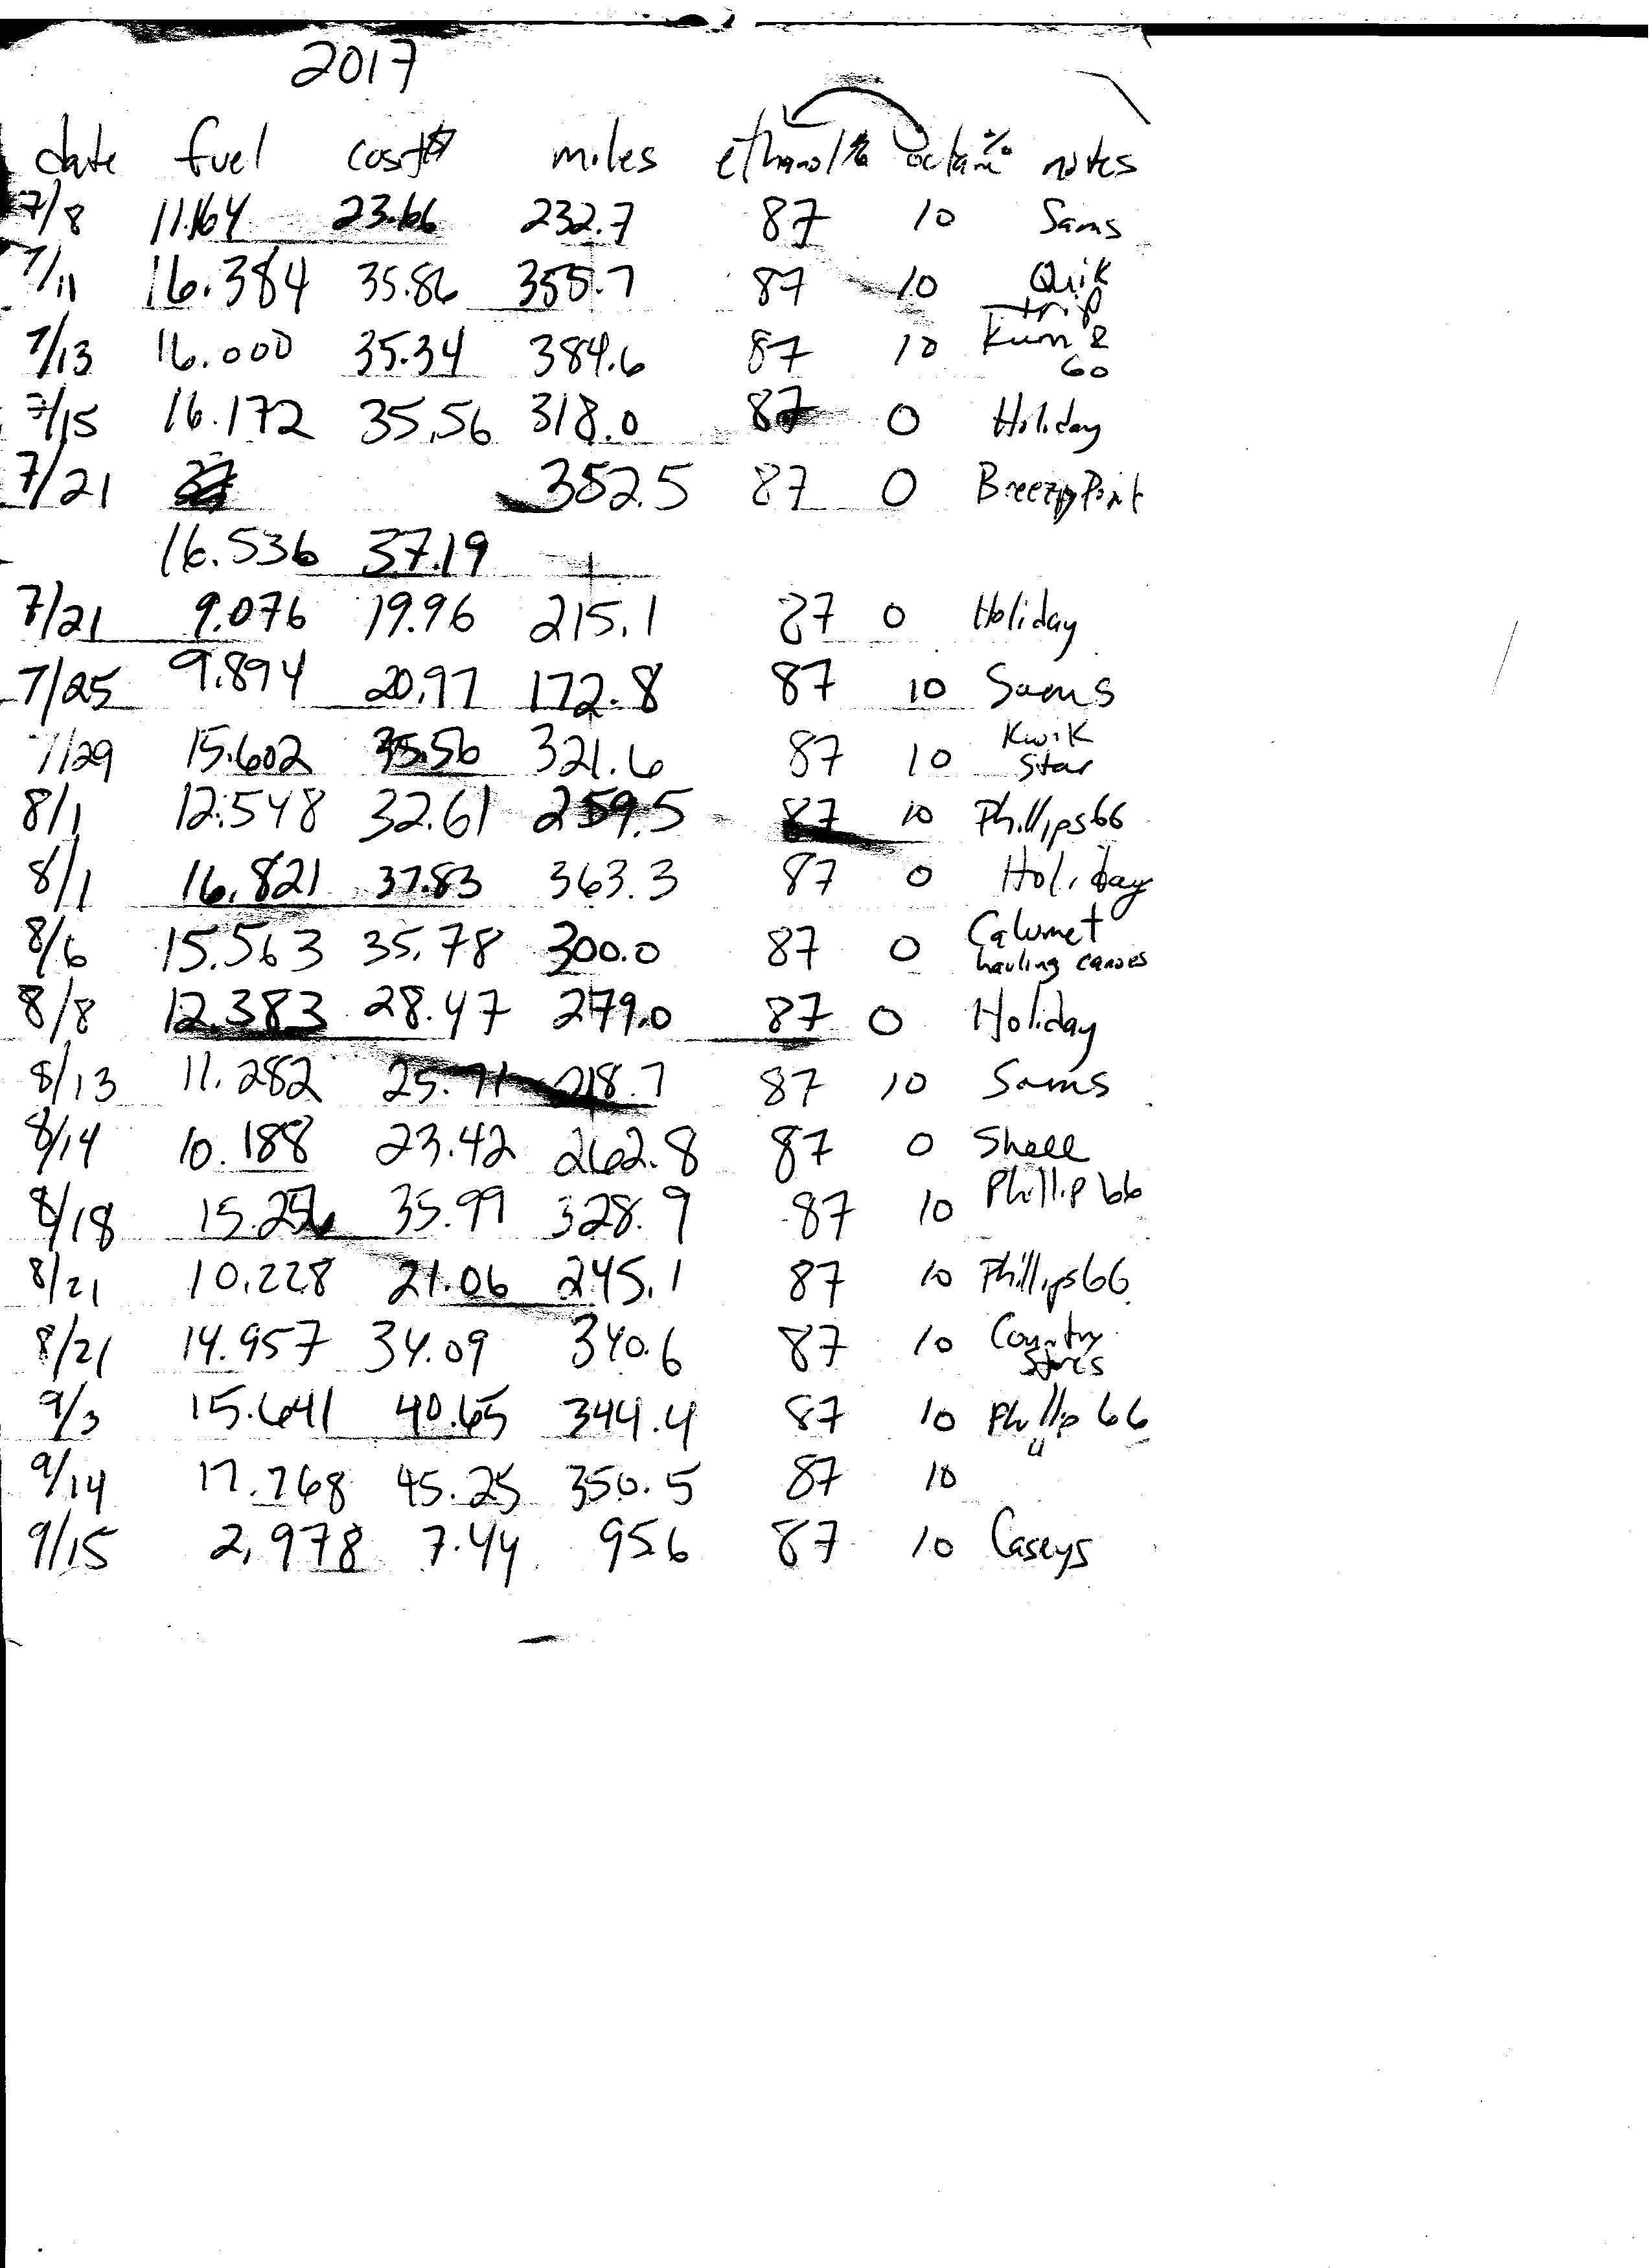 2017
date fuel cost$ miles ethanol% octane% notes
7/8 11.164 23.66 232.7 87 10 Sams
7/11 16.384 35.86 355.7 87 10 Quik
trip
7/13 16.000 35.34 384.6 87 10 Kum &
Go
7/15 16.172 35.56 318.0 87 0 Holiday
7/21 352.5 87 0 Breezy Point
16.536 37.19
7/21 9.076 19.96 215.1 87 0 Holiday
7/25 9.894 20.97 172.8 87 10 Sams
7/29 15.602 35.56 321.6 87 10 Kwik
Star
8/1 12.548 32.61 259.5 87 10 Phillips 66
8/1 16.821 37.83 363.3 87 0 Holiday
8/6 15.563 35.78 300.0 87 0 Calumet
hauling canoes
8/8 12.383 28.47 279.0 87 0 Holiday
8/13 11.282 25.71 218.7 87 10 Sams
8/14 10.188 23.42 262.8 87 0 Shell
8/18 15.256 35.99 328.9 87 10 Phillip 66
8/21 10.228 21.06 245.1 87 10 Phillips 66
8/21 14.957 34.09 340.6 87 10 Country
Stores
9/3 15.641 40.65 344.4 87 10 Phillip 66
9/14 17.768 45.25 350.5 87 10
9/15 2.978 7.44 95.6 87 10 Caseys